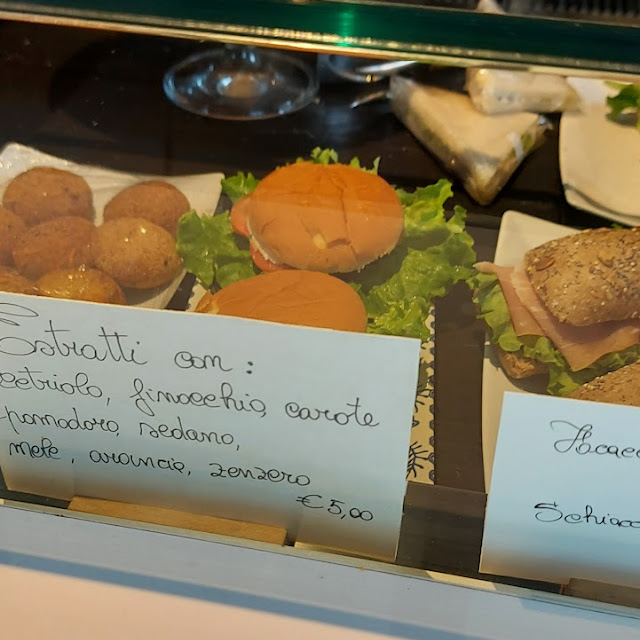 Estratti con:
cetriolo, finocchio, carote
pomodoro, sedano,
mele, arancie, zenzero
€ 5,00